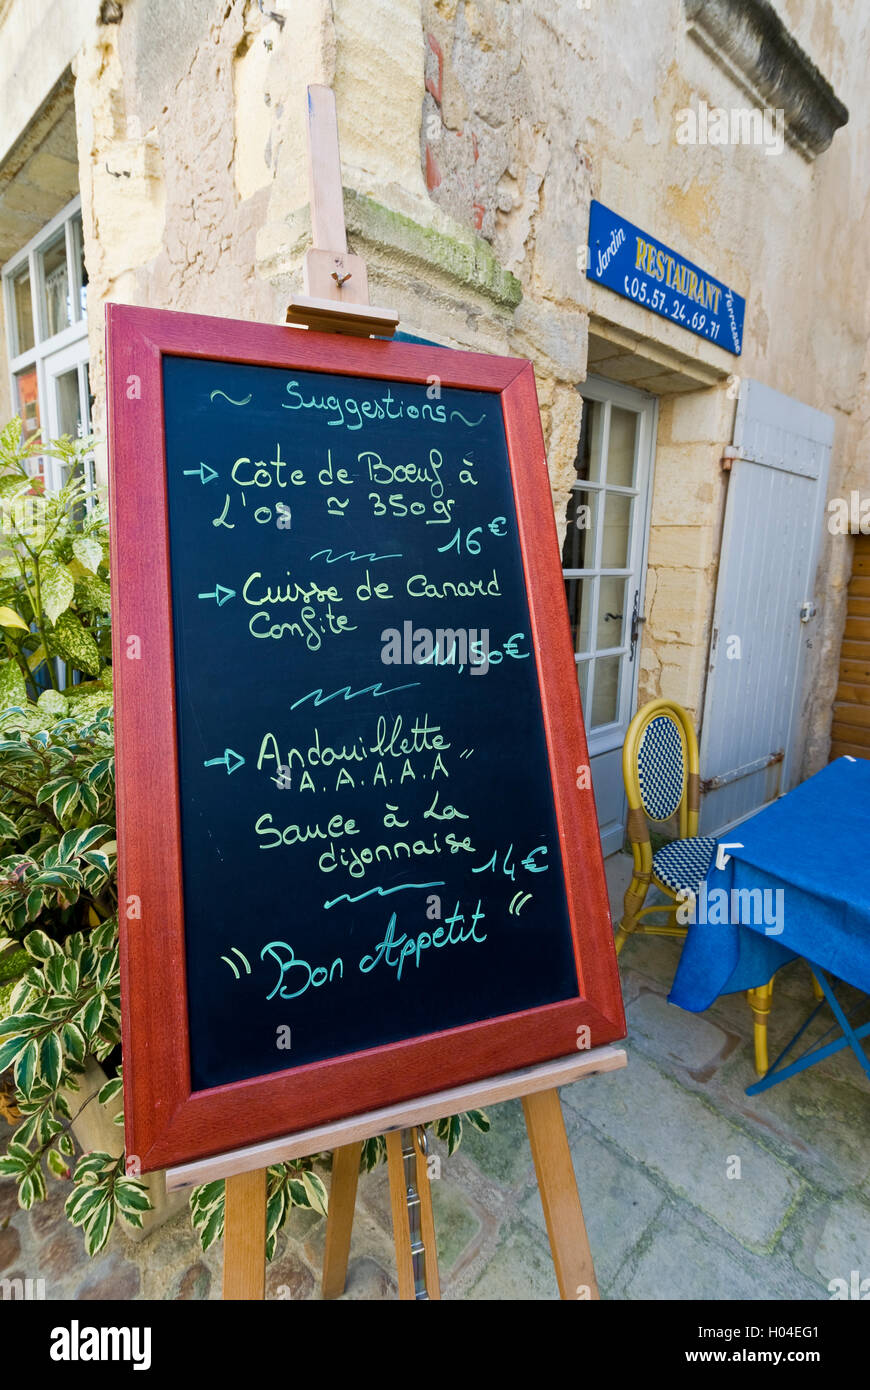 ~ Suggestions ~
→ Côte de Bœuf à
L'os ≃ 350gr
16€
→ Cuisse de Canard
Confite
11,50€
→ Andouillette
"A.A.A.A.A"
Sauce à La
dijonnaise
14€
"Bon Appetit"
Jardin
RESTAURANT
05.57.24.69.71
Terrasse
alamy
alamy
a
a
a
alamy
Image ID: H04EG1
www.alamy.com